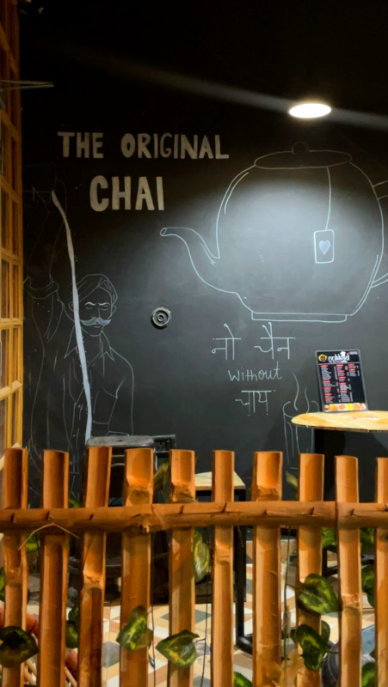 THE ORIGINAL
CHAI
नो चैन
without
चाय